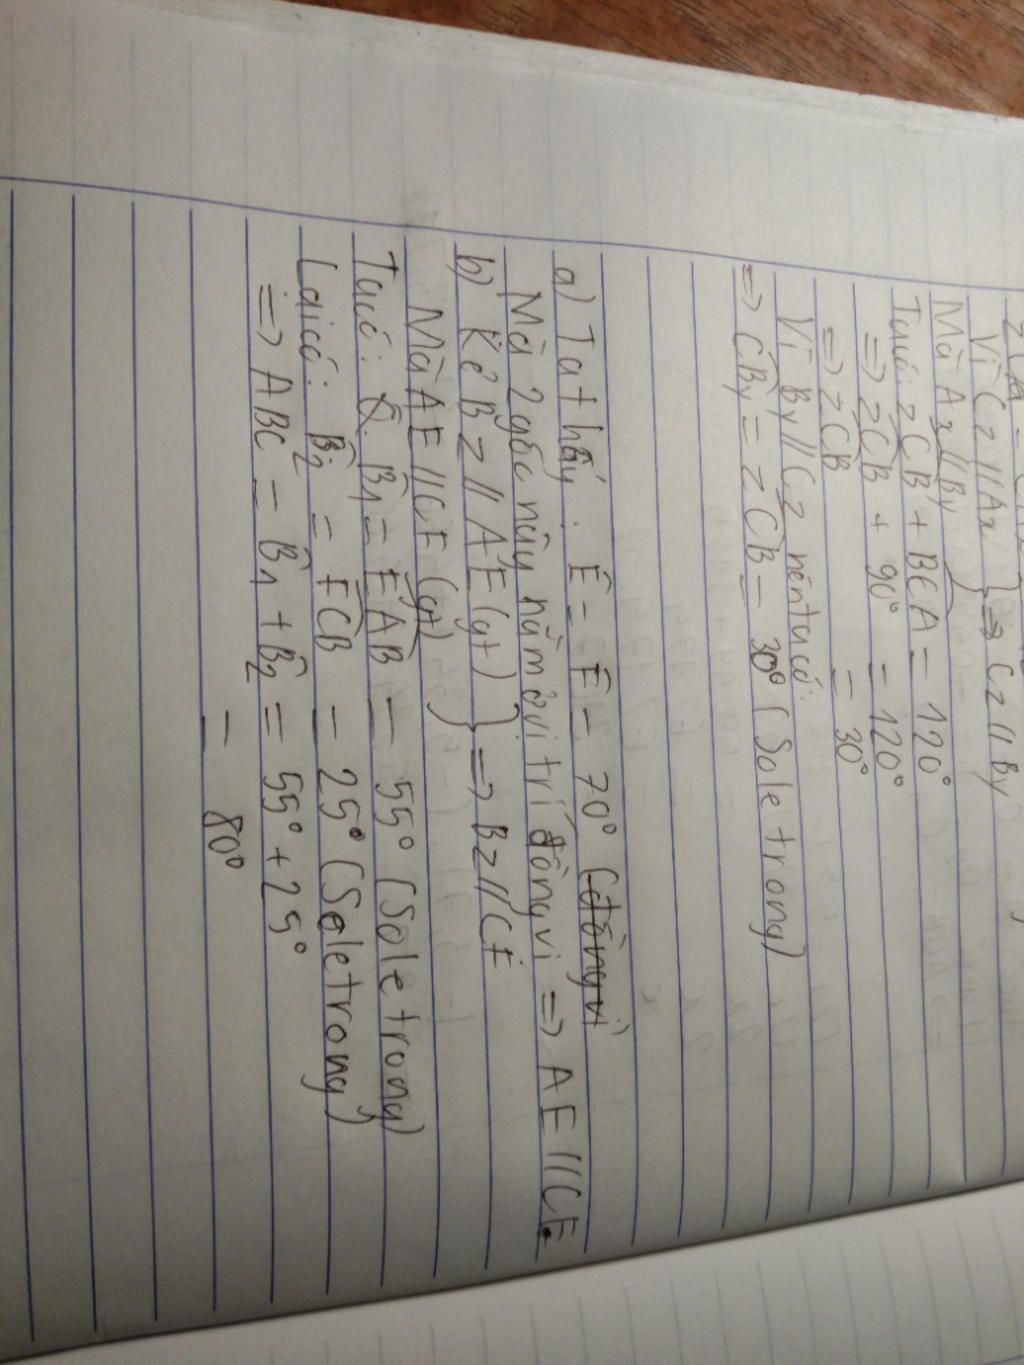 Vì Cz // Ax } => Cz // By
Mà Ax // By
Ta có: zCB + BCA = 120°
=> zCB + 90° = 120°
=> zCB = 30°
Vì By // Cz nên ta có:
=> CBy = zCB = 30° (Sole trong)
a) Ta thấy: Ê = F̂ = 70° (đồng vị
Mà 2 góc này nằm ở vị trí đồng vị => AE // CF
b) Kẻ Bz // AE (gt) } => Bz // CF
Mà AE // CF (gt)
Ta có: B̂1 = EAB = 55° (Sole trong)
Lại có: B̂2 = FCB = 25° (Sole trong)
=> ABC = B̂1 + B̂2 = 55° + 25°
= 80°